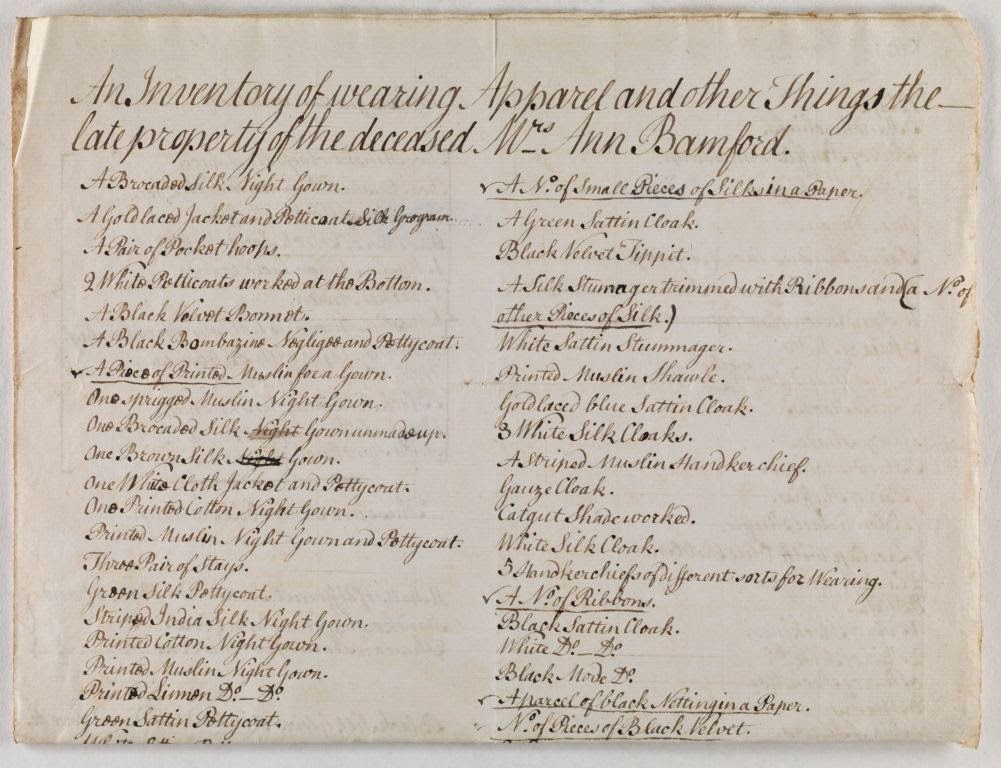 An Inventory of wearing Apparel and other Things the—
late property of the deceased Mrs Ann Bamford.
A Brocaded Silk Night Gown.
A Gold laced Jacket and Petticoat Silk Grogram.
A Pair of Pocket hoops.
2 White Petticoats worked at the Bottom.
A Black Velvet Bonnet.
A Black Bombazine Negligee and Pettycoat.
A Piece of Printed Muslin for a Gown.
One sprigged Muslin Night Gown.
One Brocaded Silk Night Gown unmade up.
One Brown Silk Night Gown.
One White Cloth Jacket and Pettycoat.
One Printed Cotton Night Gown.
Printed Muslin Night Gown and Pettycoat.
Three Pair of Stays.
Green Silk Pettycoat.
Striped India Silk Night Gown.
Printed Cotton Night Gown.
Printed Muslin Night Gown.
Printed Linnen Do.— Do.
Green Sattin Pettycoat.
A No. of Small Pieces of Silks in a Paper.
A Green Sattin Cloak.
Black Velvet Tippit.
A Silk Stumager trimmed with Ribbons and (a No. of
other Pieces of Silk.)
White Sattin Stummager.
Printed Muslin Shawle.
Gold laced blue Sattin Cloak.
3 White Silk Cloaks.
A Striped Muslin Handkerchief.
Gauze Cloak.
Catgut Shade worked.
White Silk Cloak.
5 Handkerchiefs of different sorts for Wearing.
A No. of Ribbons.
Black Sattin Cloak.
White Do.— Do.
Black Mode Do.
A parcel of black Netting in a Paper.
No. of Pieces of Black Velvet.